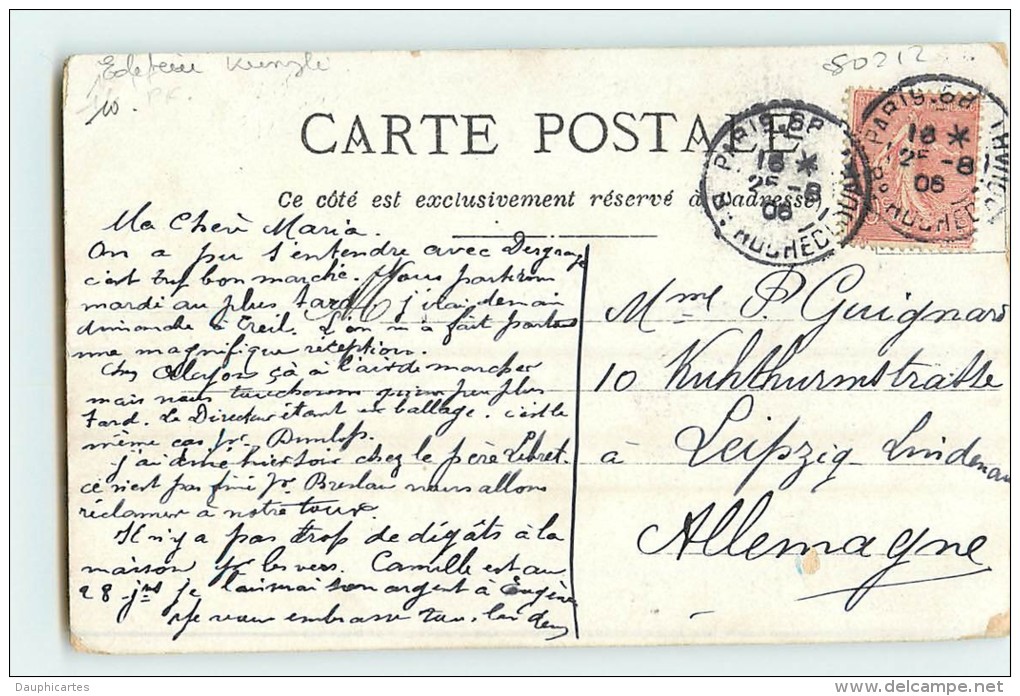 80212
CARTE POSTALE
Ce côté est exclusivement réservé à l'adresse
PARIS-68
18 *
25 -8
06
R. ROCHECHOUART
PARIS-68
18 *
25 -8
06
R. ROCHECHOUART
Ma Chère Maria.
On a pu s'entendre avec
c'est bon marché. Nous partirons
mardi au plus tard j'irai demain
dimanche à Creil. L'on m'a fait partout
une magnifique réception.
Chez ça à l'air de marcher
mais nous toucherons plus
tard. Le Directeur étant en ballage. c'est le
même cas pr. Dunlop.
j'ai diné hier soir chez le père
ce n'est pas fini pr Breslau nous allons
réclamer à notre tour
Il n'y a pas trop de dégâts à la
maison pr les vers. Camille est au
28 - jrs je argent à Eugène
Je veux embrasse les deux
Mme P. Guignard
10 Kuhthurmstratte
à Leipzig Lindenau
Allemagne
Dauphicartes
www.delcampe.net